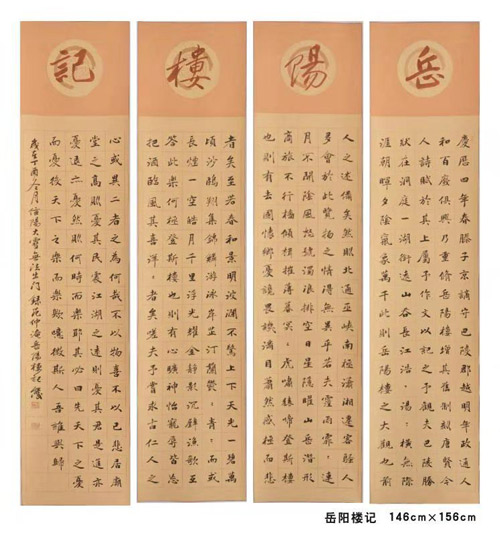 岳
慶曆四年春滕子京謫守巴陵郡越明年政通人
和百廢俱興乃重修岳陽樓增其舊制刻唐賢今
人詩賦於其上屬予作文以記之予觀夫巴陵勝
狀在洞庭一湖銜遠山吞長江浩々湯々橫無際
涯朝暉夕陰氣象萬千此則岳陽樓之大觀也前
陽
人之述備矣然則北通巫峽南極瀟湘遷客騷人
多會於此覽物之情得無異乎若夫淫雨霏々連
月不開陰風怒號濁浪排空日星隱曜山岳潛形
商旅不行檣傾楫摧薄暮冥々虎嘯猿啼登斯樓
也則有去國懷鄉憂讒畏譏滿目蕭然感極而悲
樓
者矣至若春和景明波瀾不驚上下天光一碧萬
頃沙鷗翔集錦鱗游泳岸芷汀蘭鬱々青々而或
長煙一空皓月千里浮光耀金靜影沉璧漁歌互
答此樂何極登斯樓也則有心曠神怡寵辱皆忘
把酒臨風其喜洋々者矣嗟夫予嘗求古仁人之
記
心或異二者之為何哉不以物喜不以己悲居廟
堂之高則憂其民處江湖之遠則憂其君是進亦
憂退亦憂然則何時而樂耶其必曰先天下之憂
而憂後天下之樂而樂歟噫微斯人吾誰與歸
歲在丁酉月信陽大雪無法出門錄范仲淹岳陽樓記
岳阳楼记 146cm×156cm